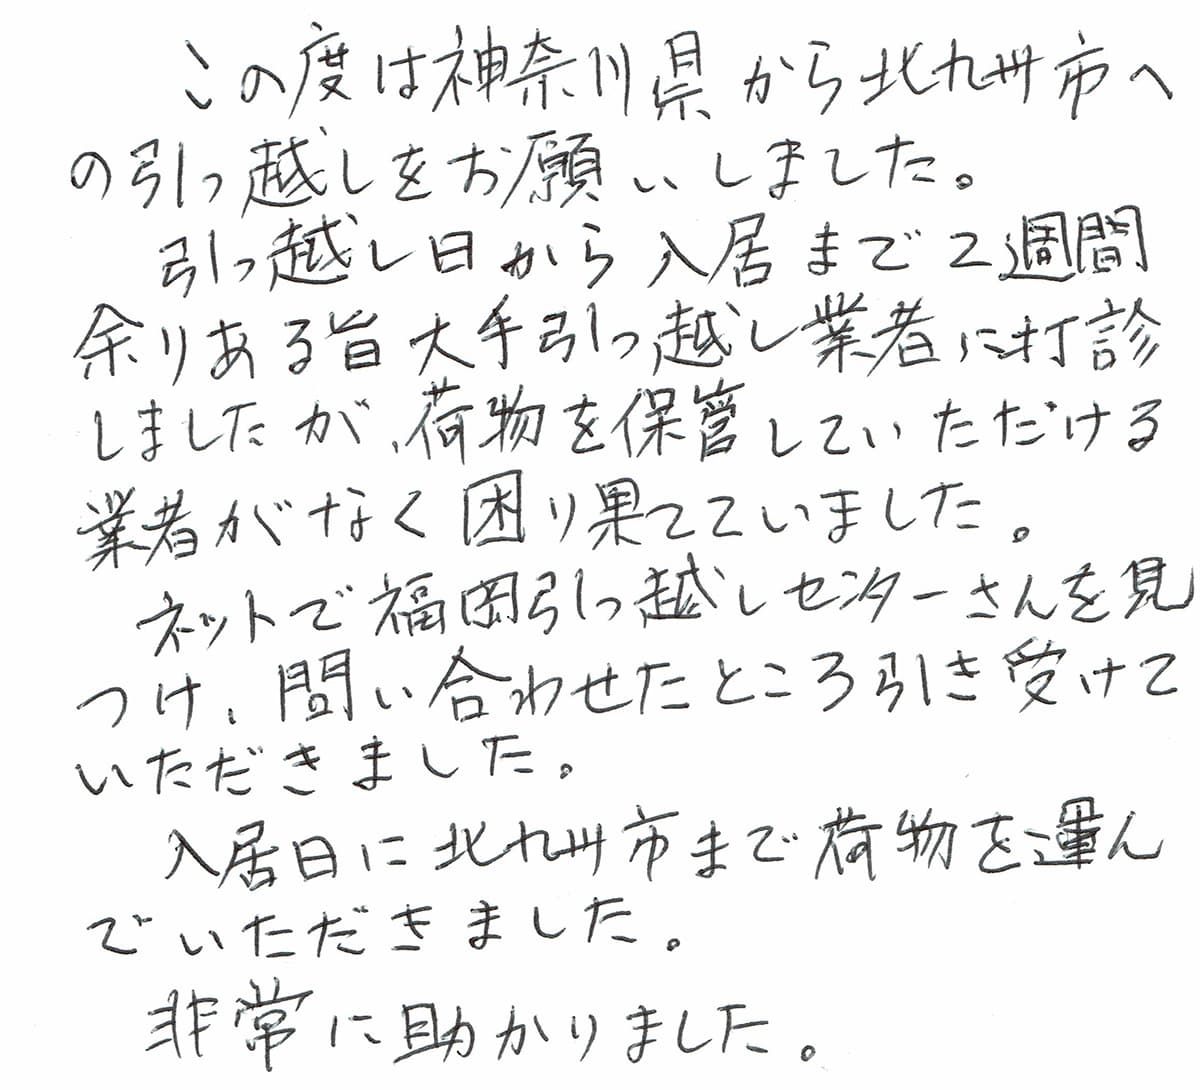 この度は神奈川県から北九州市へ
の引っ越しをお願いしました。
引っ越し日から入居まで2週間
余りある旨大手引っ越し業者に打診
しましたが、荷物を保管していただける
業者がなく困り果てていました。
ネットで福岡引っ越しセンターさんを見
つけ、問い合わせたところ引き受けて
いただきました。
入居日に北九州市まで荷物を運ん
でいただきました。
非常に助かりました。